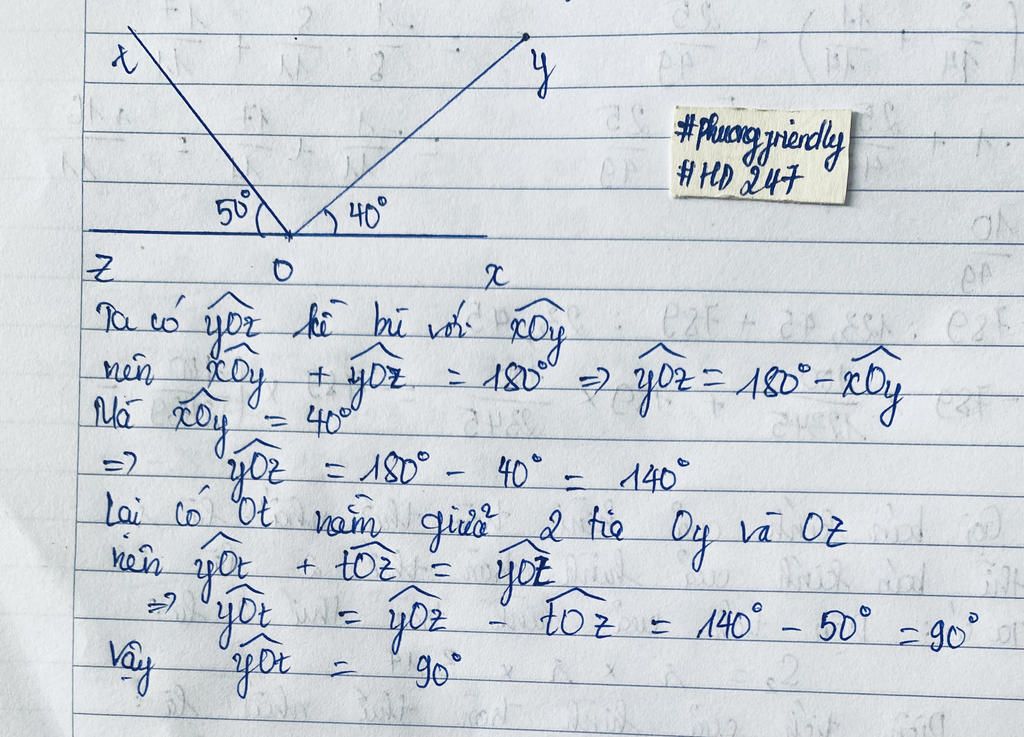 t
y
#phuongfriendly
#HD 247
50° 40°
z O x
Ta có yOz kề bù với xOy
nên xOy + yOz = 180° => yOz = 180° - xOy
Mà xOy = 40°
=> yOz = 180° - 40° = 140°
Lại có Ot nằm giữa 2 tia Oy và Oz
nên yOt + tOz = yOz
=> yOt = yOz - tOz = 140° - 50° = 90°
Vậy yOt = 90°